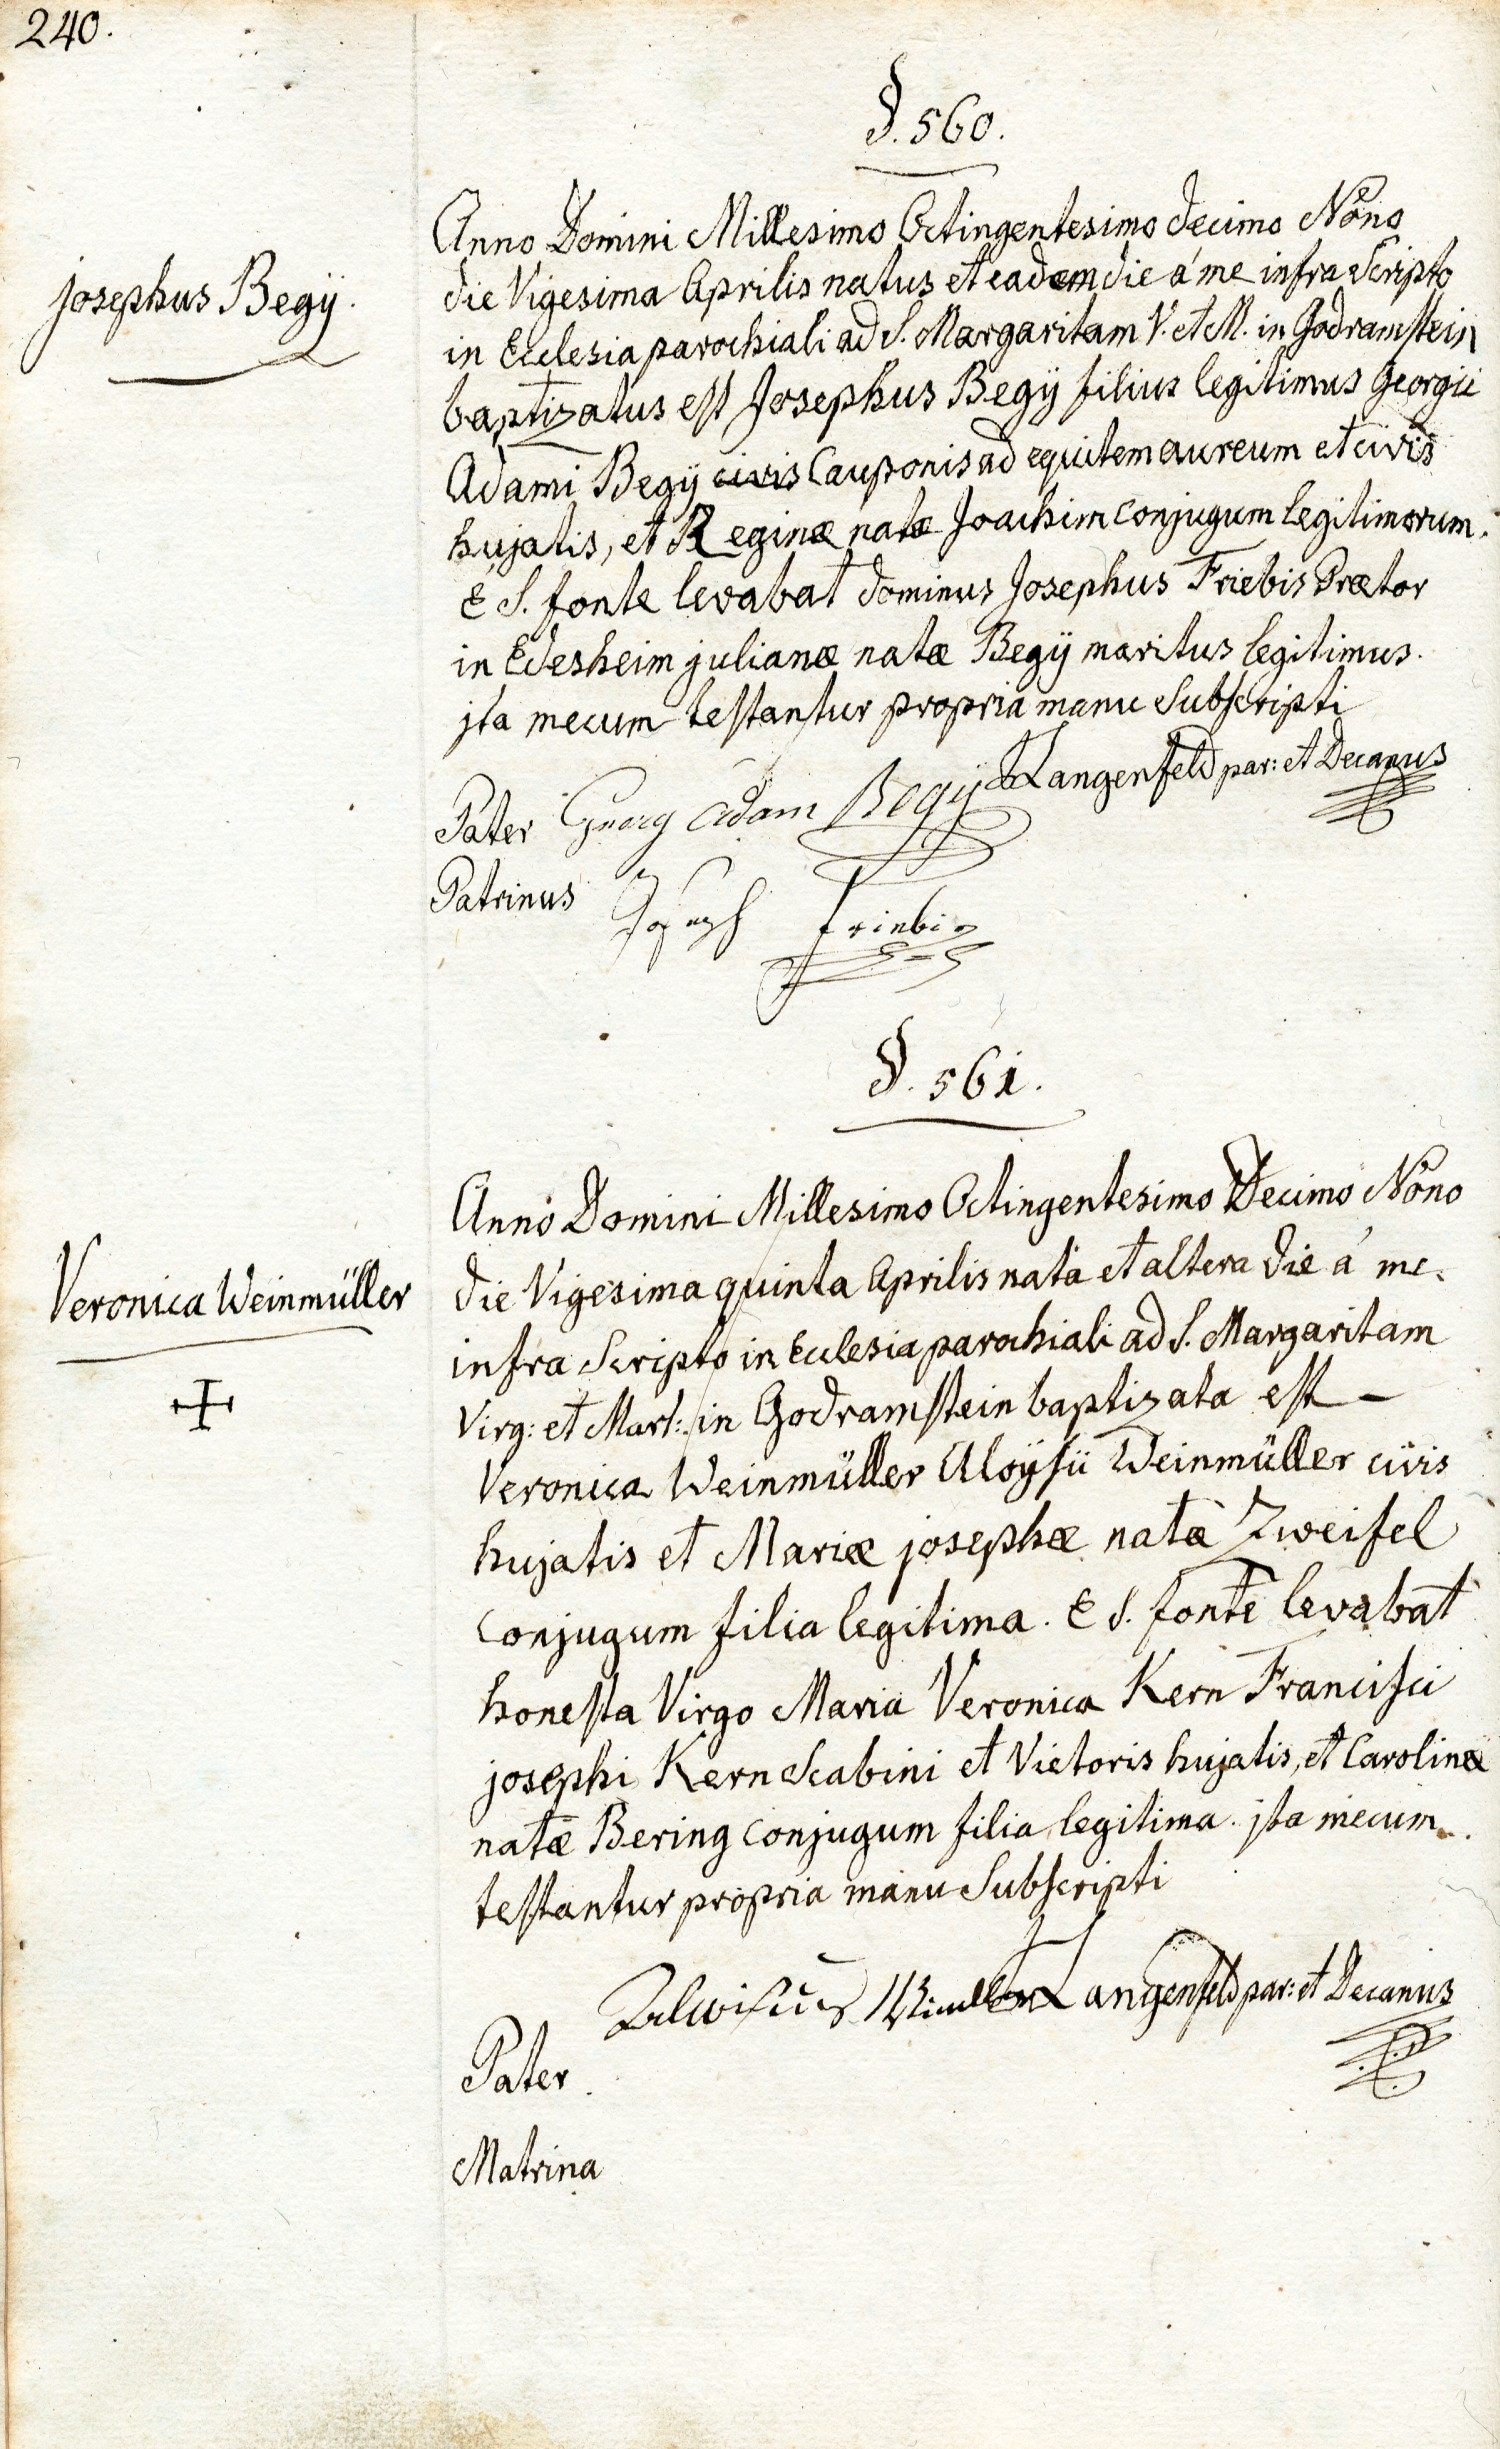 240.
§. 560.
Josephus Begÿ.
Anno Domini Millesimo Octingentesimo decimo Nono
die Vigesima Aprilis natus et eadem die á me infra Scripto
in Ecclesia parochiali ad S. Margaritam V. et M. in Godramstein
baptizatus est Josephus Begÿ filius legitimus Georgii
Adami Begÿ civis Cauponis ad equitem aureum et civis
hujatis, et Reginæ natæ Joachim conjugum legitimorum.
E S. fonte levabat dominus Josephus Friebis Prætor
in Edesheim julianæ natæ Begÿ maritus legitimus.
jta mecum testantur propria manu Subscripti
Langenfeld par: et Decanus
Pater Georg Adam Begÿ
Patrinus Joseph Friebis
§. 561.
Veronica Weinmüller
Anno Domini Millesimo Octingentesimo Decimo Nono
die Vigesima quinta Aprilis nata et altera die á me
infra Scripto in Ecclesia parochiali ad S. Margaritam
Virg: et Mart: in Godramstein baptizata est –
Veronica Weinmüller Aloÿsii Weinmüller civis
hujatis et Mariæ josephæ natæ Zweifel
conjugum filia legitima. E S. fonte levabat
honesta Virgo Maria Veronica Kern Francisci
josephi Kern Scabini et Vietoris hujatis, et Carolinæ
natæ Bering conjugum filia legitima. jta mecum
testantur propria manu Subscripti
Langenfeld par: et Decanus
Pater
Matrina